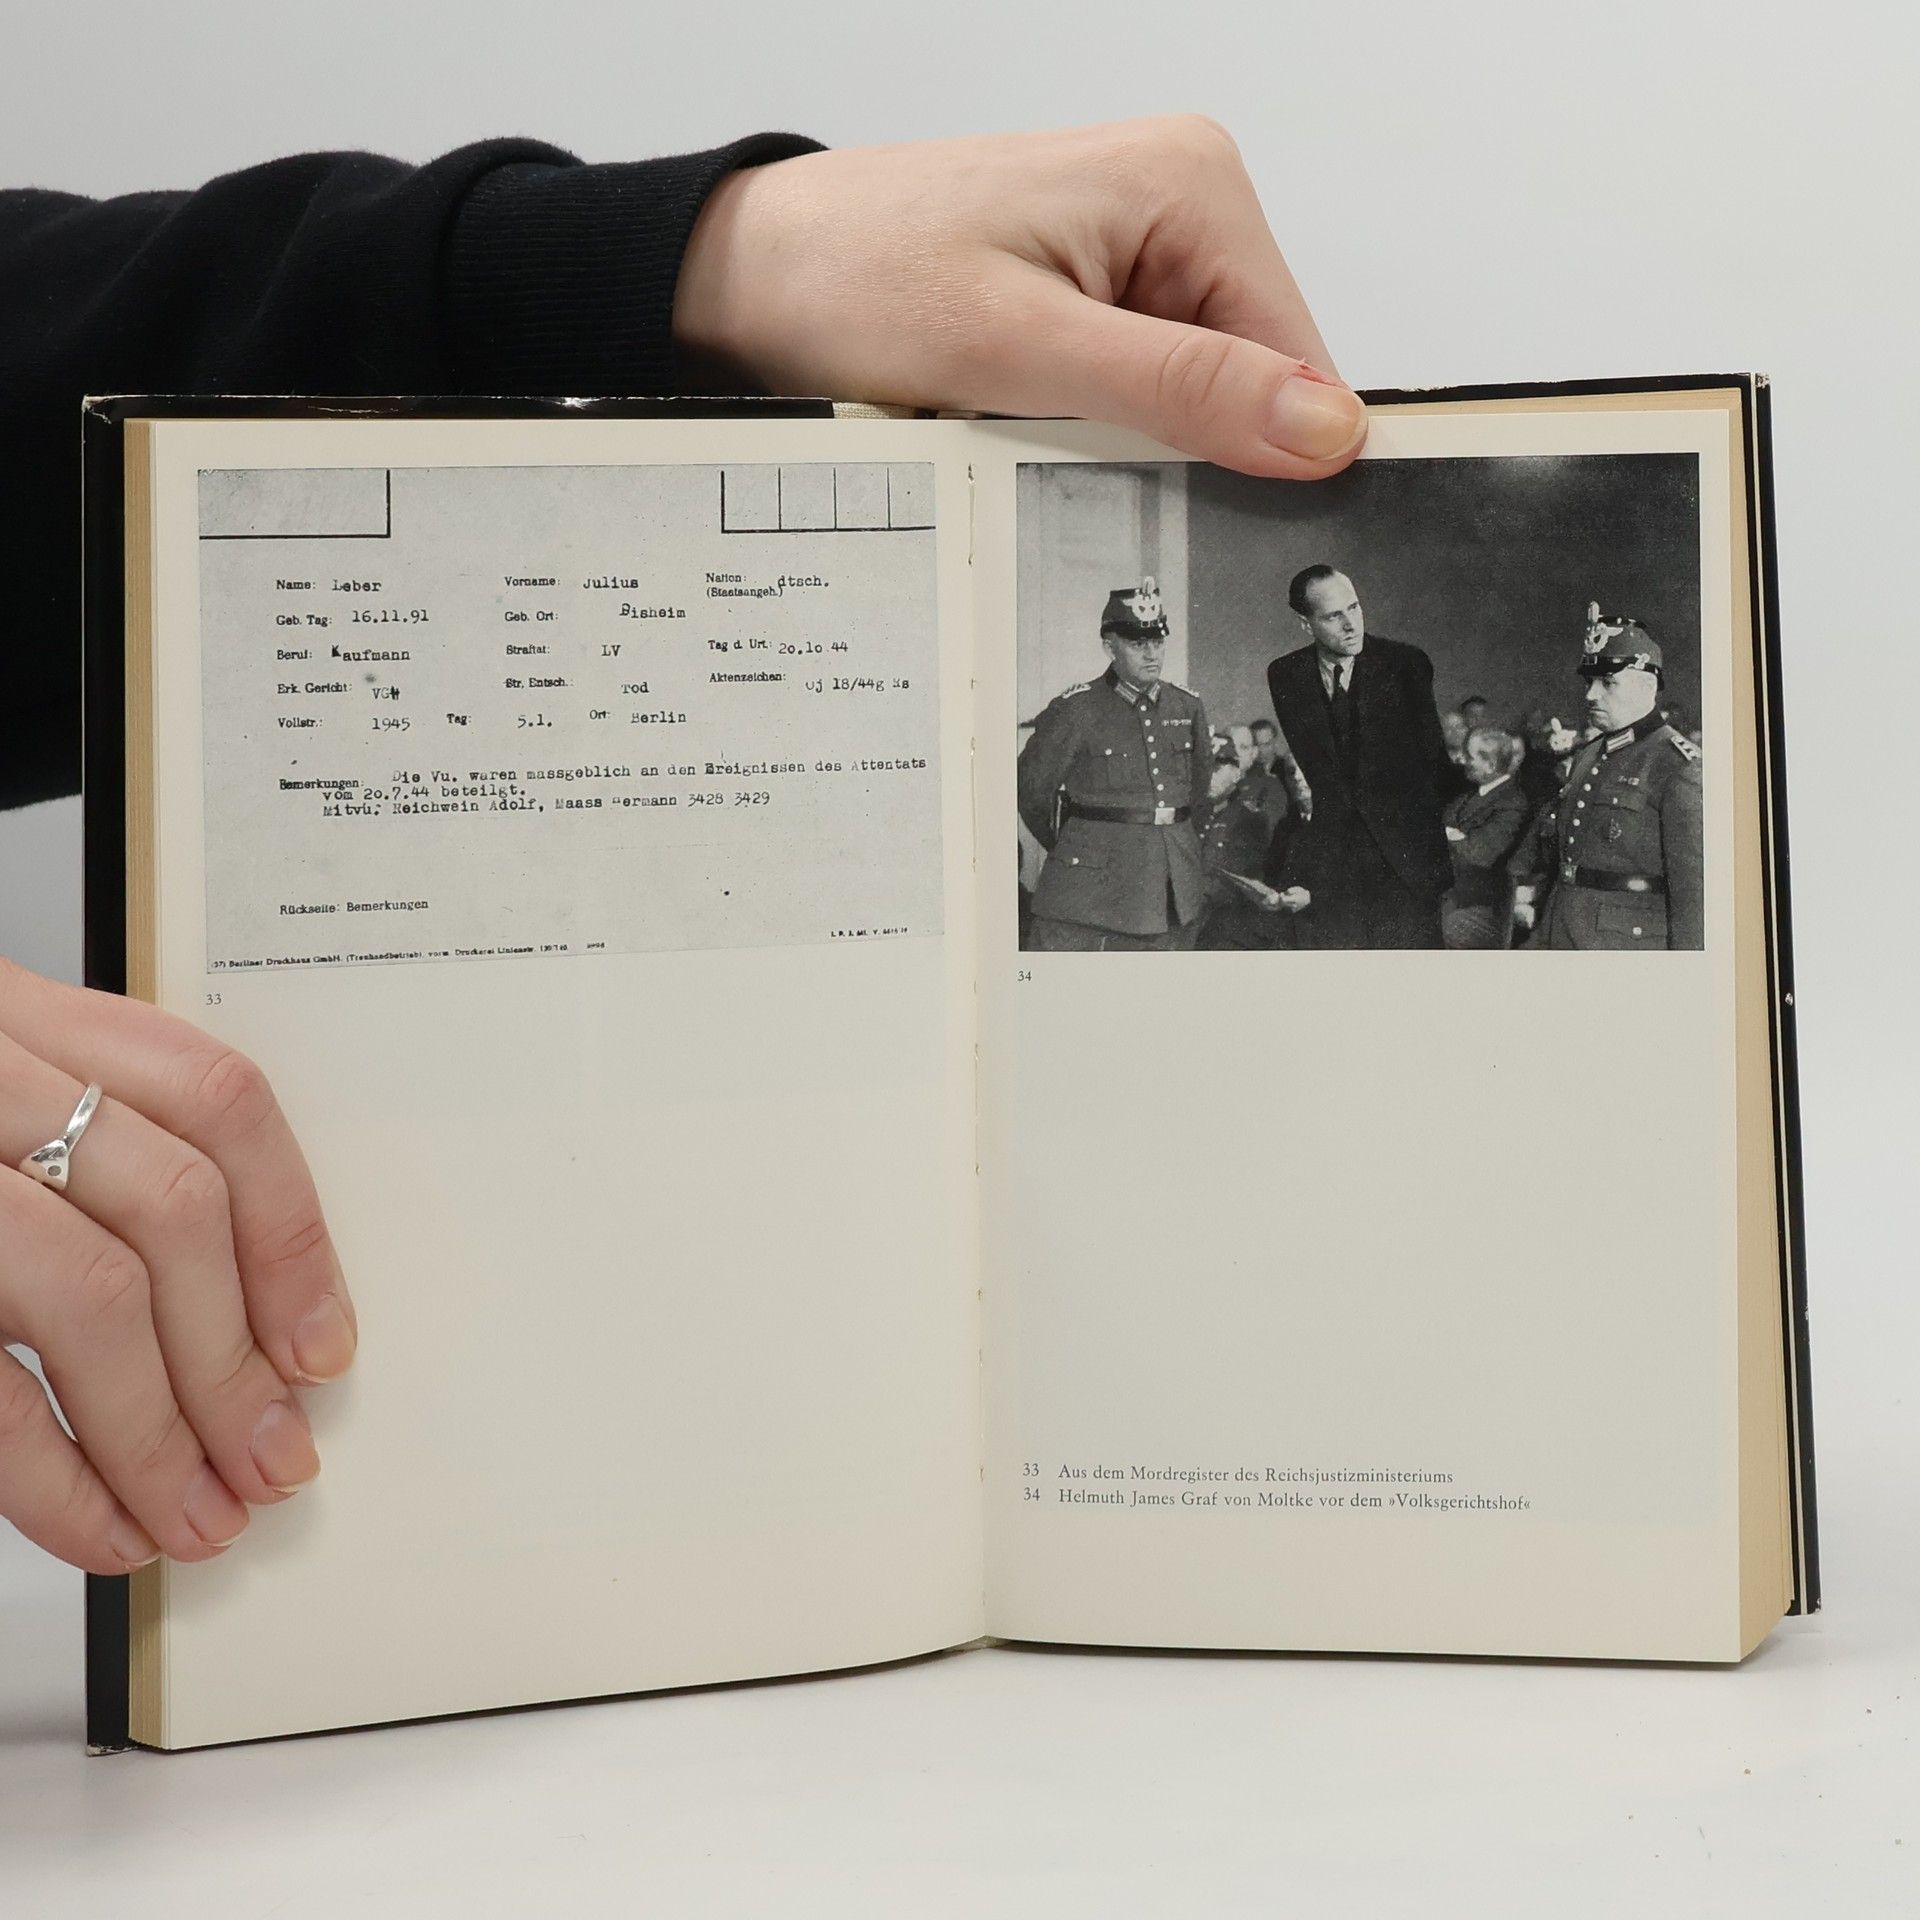 Name: Leber Vorname: Julius Nation: dtsch.
(Staatsangeh.)
Geb. Tag: 16.11.91 Geb. Ort: Bisheim
Beruf: Kaufmann Straftat: LV Tag d. Urt.: 20.10.44
Erk. Gericht: VGH Str. Entsch.: Tod Aktenzeichen: OJ 18/44g Rs
Vollstr.: 1945 Tag: 5.1. Ort: Berlin
Bemerkungen: Die Vu. waren massgeblich an den Ereignissen des Attentats
vom 20.7.44 beteilgt.
Mitvu: Reichwein Adolf, Maass Hermann 3428 3429
Rückseite: Bemerkungen
(37) Berliner Druckhaus GmbH. (Treuhandbetrieb), vorm. Druckerei Linienstr.
33
34
33 Aus dem Mordregister des Reichsjustizministeriums
34 Helmuth James Graf von Moltke vor dem »Volksgerichtshof«